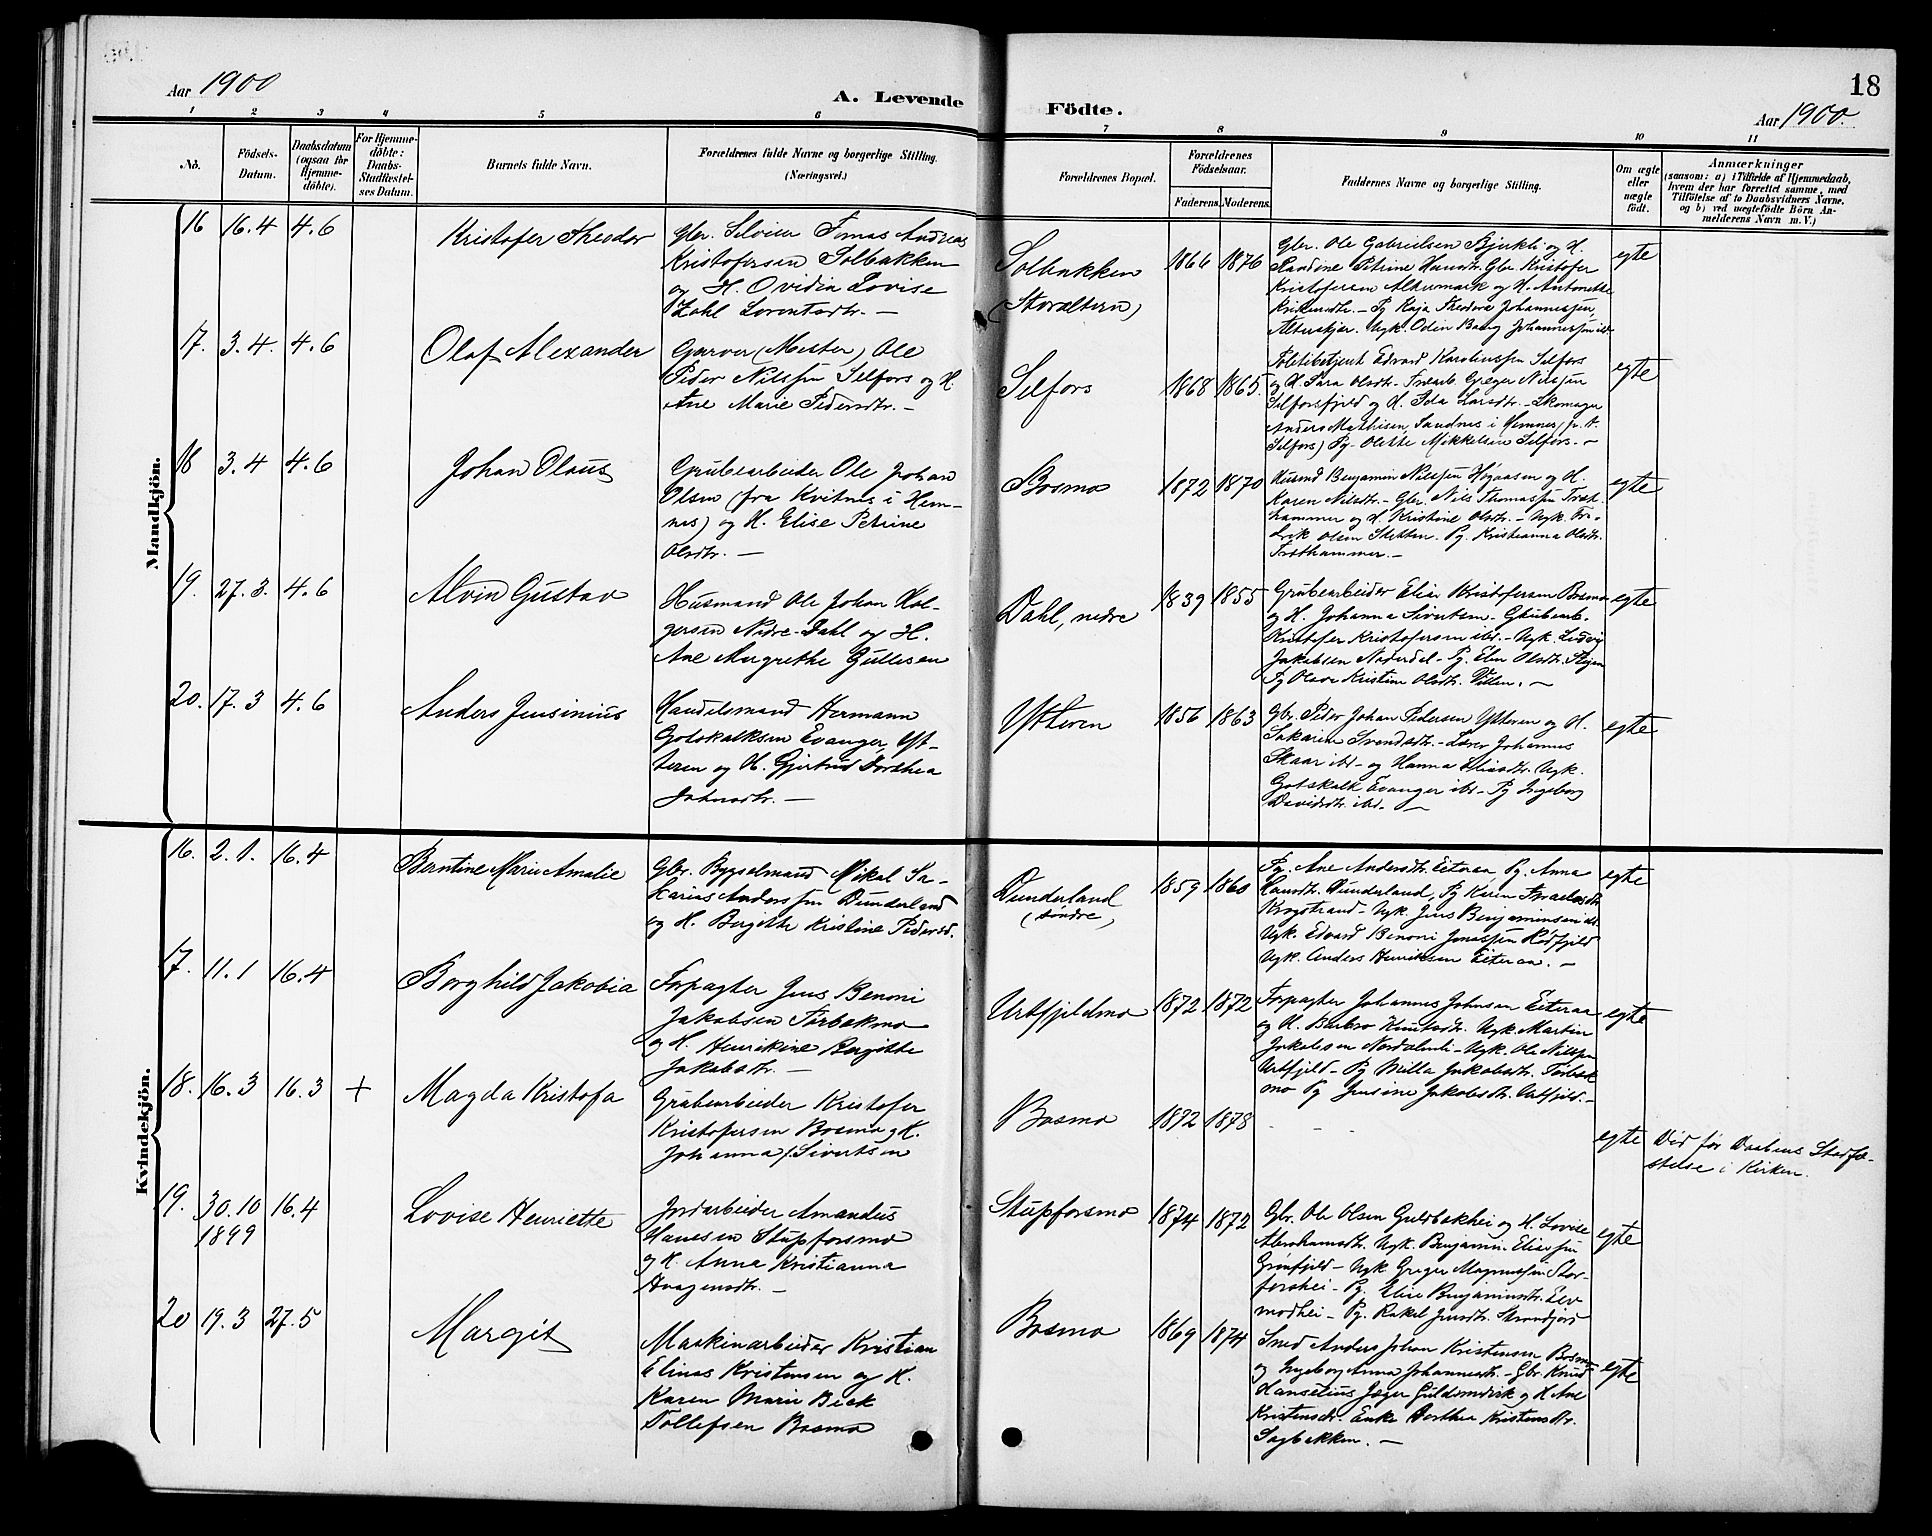 Aar 1900
A. Levende
Födte.
18
Aar 1900.
1 2 3 4 5 6 7 8 9 10 11
Nö.
Födsels-
Datum.
Daabsdatum
(ogsaa for
Hjemme-
døbte).
For Hjemme-
døbte:
Daabs-
Stadfæstel-
ses Datum.
Barnets fulde Navn.
Forældrenes fulde Navne og borgerlige Stilling.
(Næringsvei.)
Forældrenes Bopæl.
Forældrenes
Födselsaar.
Faderens. Moderens.
Faddernes Navne og borgerlige Stilling.
Om ægte
eller
uægte
födt.
Anmærkninger
(saasom: a) i Tilfælde af Hjemmedaab,
hvem der har forrettet samme, med
Tilföielse af to Daabsvidners Navne,
og b) ved uægtefödte Börn An-
melderens Navn m. V.)
Mandkjön.
16 16.4 4.6 Kristofer Theodor
Gbr. Selveier Tomas Andreas
Kristofersen Solbakken
og H. Ovidia Lovise
Zahl Lorentsdtr. —
Solbakken
(Storaltern)
1866 1876
Gbr. Ole Gabrielsen Bjerkli og H.
Randine Petrine Hansdtr. Gbr. Kristofer
Kristofersen Altermark og H. Antonette
— Pg. Kaja Theodora Johannessen,
Alterskjær. Ugk. Odin Baag Johannessen ibd.
egte
17. 3.4. 4.6 Olaf Alexander
Garver (Mester) Ole
Peder Nilssen Selfors og H.
Ane Marie Pedersdtr. —
Selfors
1868 1865.
Politibetjent Edvard Karolinssen Selfors
og H. Sara Olsdtr. Greger Nilssen
Selforsfjeld og H. Larsdtr. — Skomager
Anders Mathisen, Sandnes i Hemnes,
Selfors) Pg. Olette Mikkelsen Selfors. —
egte
18 3.4 4.6 Johan Olaus
Grubearbeider Ole Johan
Olsen (fra Kvitnes i Hem-
nes) og H. Elise Petrine
Olsdtr. —
Bosmo
1872 1870
Husmd Benjamin Nilssen Høgaasen og H.
Karen Nilsdtr. — Gbr. Nils Thomassen Træt-
hammer og H. Kristine Olsdtr. — Ugk. Fre-
drik Olsen Stetten. Pg. Kristianna Olsdtr.
Træthammer. —
egte
19. 27.3. 4.6 Alvin Gustav
Husmand Ole Johan Hol-
gersen Nedre-Dahl og H.
Ane Margrethe Gullesen
Dahl, nedre
1839 1855
Grubearbeider Elias Kristofersen Bosmo
og H. Johanna Sivertsen — Grubearb.
Kristofer Kristofersen ibd. — Ugk. Ludvig
Jakobsen Nederdal — Pg. Elen Olsdtr.
Pg Olava Kristine Olsdtr. —
egte
20. 17.3 4.6 Anders Jensinius
Handelsmand Hermann
Gotskalksen Evanger, Yt-
teren og H. Gjertrud Dorthea
Johnsdtr. —
Ytteren
1856 1863
Gbr. Peder Johan Pedersen Ytteren og H.
Sakarine Svendsdtr. — Lærer Johannes
Skaar ibd — og Hanna Eliasdtr. Ugk.
Gotskalk Evanger ibd — Pg Ingeborg
Davidsdtr. ibd. —
egte
Kvindekjön.
16. 2.1. 16.4 Berntine Marie Amalie
Gbr. Bygselmand Mikal Sa-
karias Anderssen Dunderland
og H. Bergitte Kristine Pedersd.
Dunderland
(søndre)
1859 1860
Pg. Ane Andersdtr. Eiteraa Pg. Anna
Hansdtr. Dunderland, Pg Karen Israelsdtr.
Krogstrand — Ugk. Jens Benjaminsen ibd.
Ugk. Edvard Benoni Jonassen Rødfjeld
Ugk. Anders Henriksen Eiteraa. —
egte
17. 11.1 16.4 Borghild Jakobia
Forpagter Jens Benoni
Jakobsen Tørbakmo
og H. Henrikine Bergitte
Jakobsdtr. —
Urtfjeldmo
1872 1872
Forpagter Johannes Johnsen Eiteraa
og H. Barbro Knutsdtr. Ugk. Martin
Jakobsen Nordalmli — Ugk. Ole Nilssen
Urtfjeld — Pg Milla Jakobsdtr. Tørbak
mo Pg Jensine Jakobsdtr. Urtfjeld. —
egte
18. 16.3 16.3 + Magda Kristofa
Grubearbeider Kristofer
Kristofersen Bosmo og H.
Johanna Sivertsen
Bosmo
1892 1878
- - -
egte
Död för Daabens Stadfæ-
stelse i Kirken.
19. 30.10 16.4 Lovise Henriette
1899
Jordarbeider Amandus
Hansen Stupforsmo
og H. Anna Kristianna
Haagensdtr. —
Stupforsmo
1874 1872
Gbr. Ole Olsen Guldbakhei og H. Lovise
Abrahamsdtr. Ugk. Benjamin Eliassen
Grønfjeld — Ugk Greger Magnussen Stor-
forshei — Pg. Elise Benjaminsdtr. Elv
modhei — Pg. Rakel Jensdtr. Strandjord
egte
20 19.3 27.5 Margit
Maskinarbeider Kristian
Elinas Kristensen og H.
Karen Marie Beck
Tollefsen Bosmo
Bosmo
1869 1874
Smed Anders Johan Kristensen Bosmo
og Ingeborg Anna Johannesdtr. — Gbr. Knud
Hanselius Jæger Guldsmedvik og H. Ane
Kristensdtr. Enke Dorthea Kristensdtr.
Sagbakken. —
egte